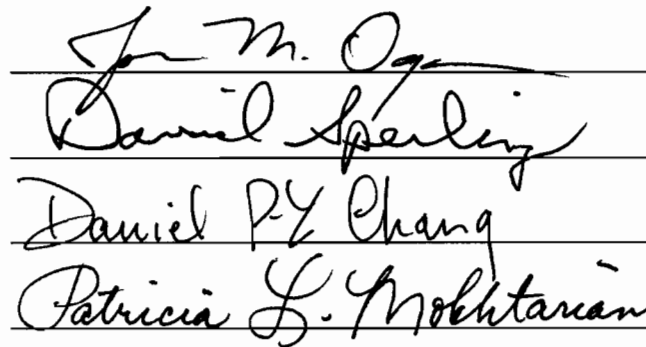 Joan M. Ogden
Daniel Sperling
Daniel P-Y Chang
Patricia L. Mokhtarian